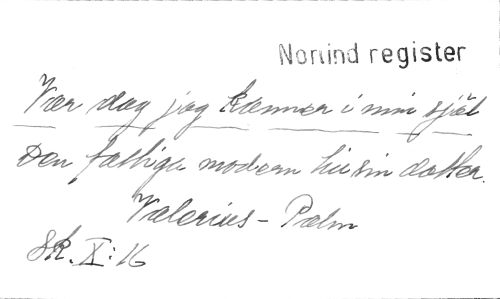 Nortind register
Var dag jag känner i min själ
Den fattiga modern hu sin dotter.
Valerius - Palm
Sk. X: 16